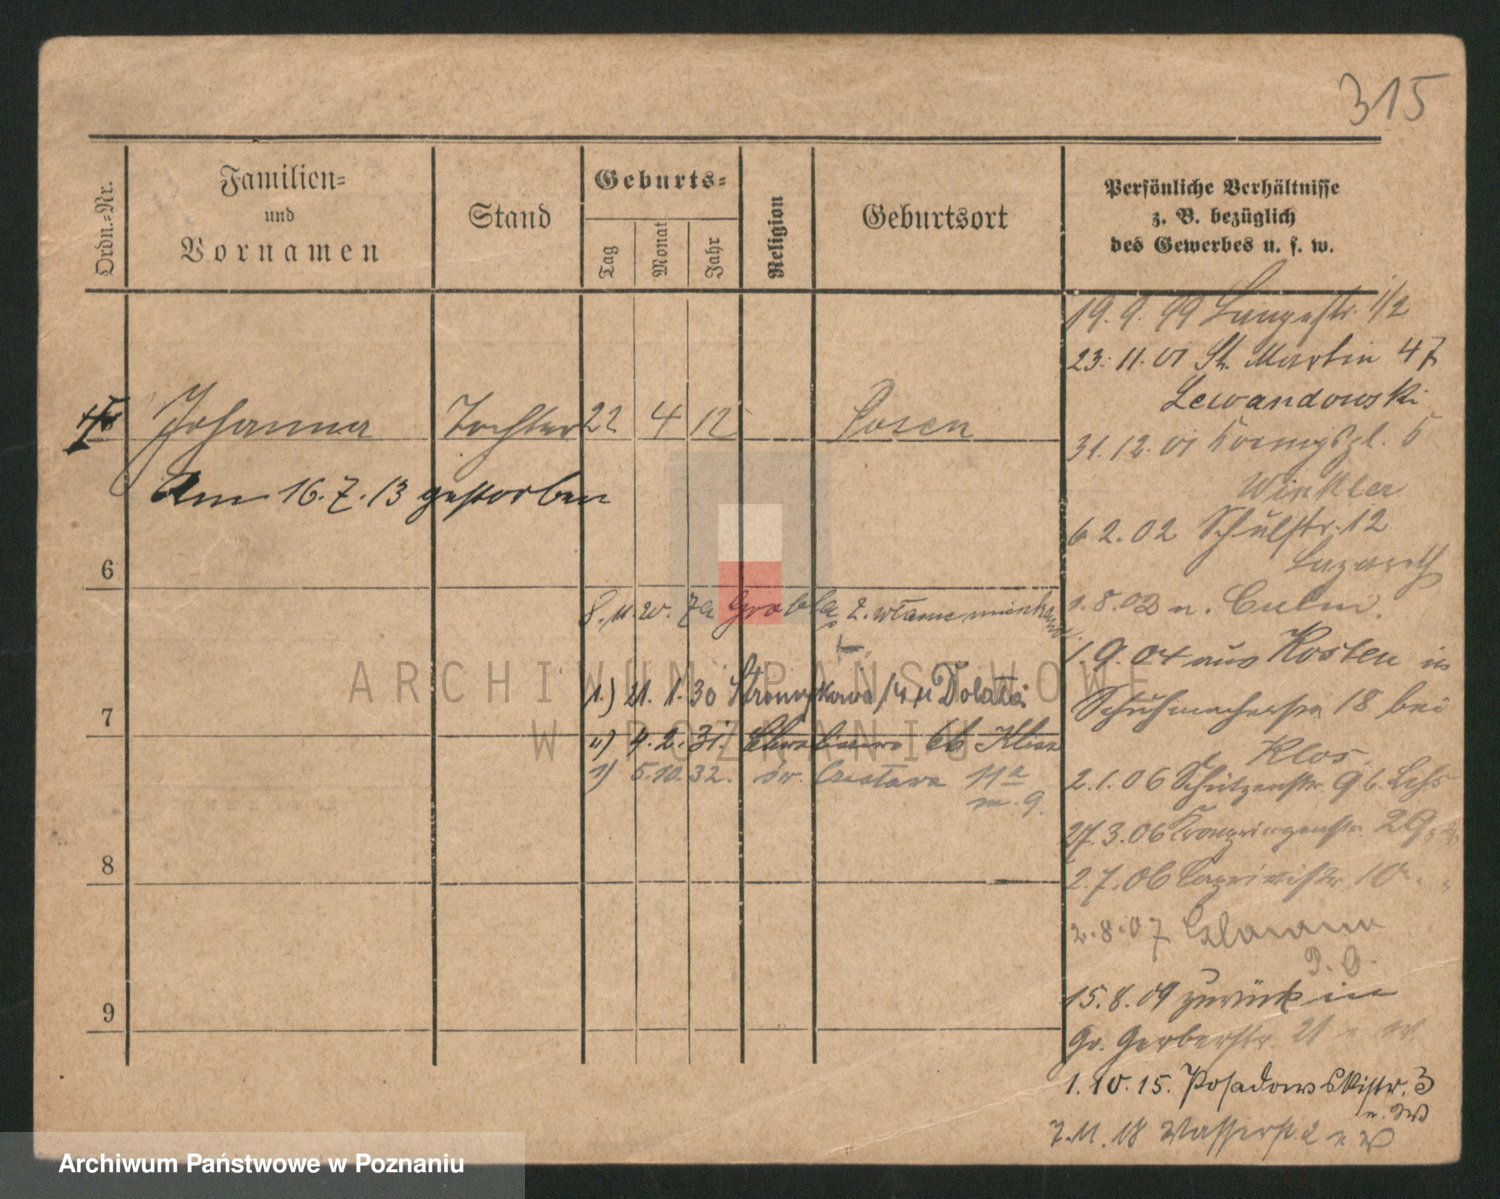 315
Ordn.-Nr.
Familien-
und
Vornamen
Stand
Geburts-
Tag
Monat
Jahr
Religion
Geburtsort
Persönliche Verhältnisse
z. B. bezüglich
des Gewerbes u. s. w.
19. 9. 99 Langestr. 1/2
23. 11. 01 St. Martin 47
Lewandowski
Johanna Tochter 22 4 12 Posen
31. 12. 01 Koenigspl. 5
Winkler
Am 16. 7. 13 gestorben
6 2. 02 Schulstr. 12
Lazareth
6
1. 8. 02 n. Culm.
8. 11. 27a Grobla 2. własne
1 9. 04 aus Kosten in
1.) 21. 1. 30 14
Schuhmacherstr 18 bei
Klos.
7
4. 2. 31. 6b
5. 10. 32. św. Czesława 11a
m. 9.
2. 1. 06 Schützenstr. 9 b.
27. 3. 06 Kronprinzenstr. 29
8
2. 7. 06 Caprivistr. 10
2. 8. 07
15. 8. 09 zurück in
9
Gr. Gerberstr. 21
1. 10. 15. Posadowskistr. 3
7. 11. 18 Wasserstr 2
ARCHIWUM PAŃSTWOWE
W POZNANIU
Archiwum Państwowe w Poznaniu